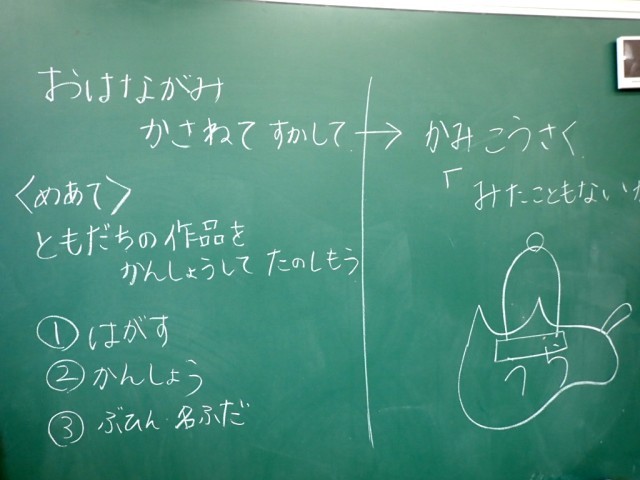 おはながみ
かさねて すかして → かみこうさく
「みたこともないか
〈めあて〉
ともだちの作品を
かんしょうして たのしもう
① はがす
② かんしょう
③ ぶひん・名ふだ